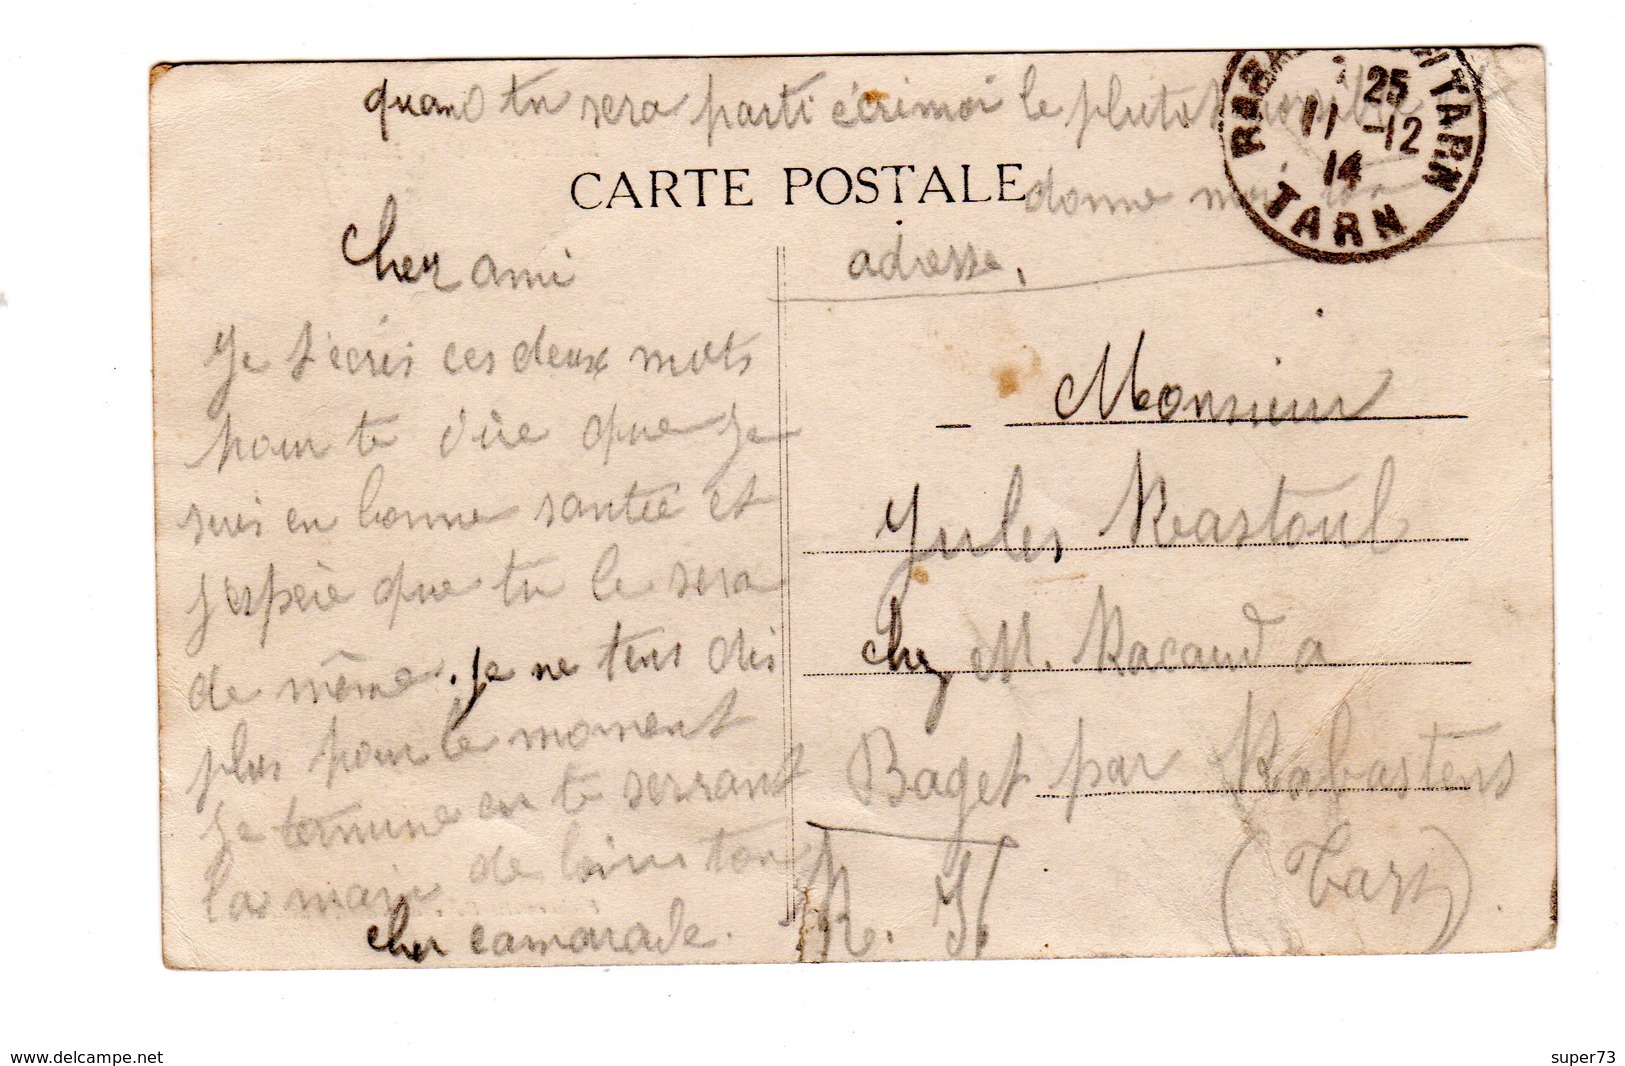 quand tu sera parti écrimoi le plutot possible
donne moi ton
adresse,
CARTE POSTALE
TARN
25
11 -12
14
TARN
Cher ami
Je t'écris ces deux mots
pour te dire que je
suis en bonne santée et
j'espère que tu le sera
de même. je ne tens dis
plus pour le moment
je termine en te serrant
la main de loins ton
cher camarade.
R. H
Monsieur
Jules Rastoul
chez M. Racaud a
Baget par Rabastens
(Tarn)
www.delcampe.net
super73